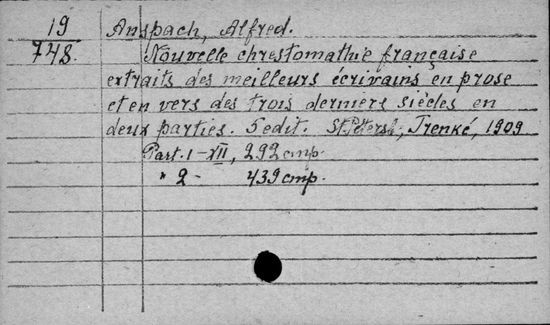 19
748.
Anspach, Alfred.
Nouvelle chrestomathie française
extraits des meilleurs écrivains en prose
et en vers des trois derniers siècles en
deux parties. 5 edit. St. Petersb., Trenké, 1909
Part. 1 - VII, 292 cmp.
" 2 - 439 cmp.